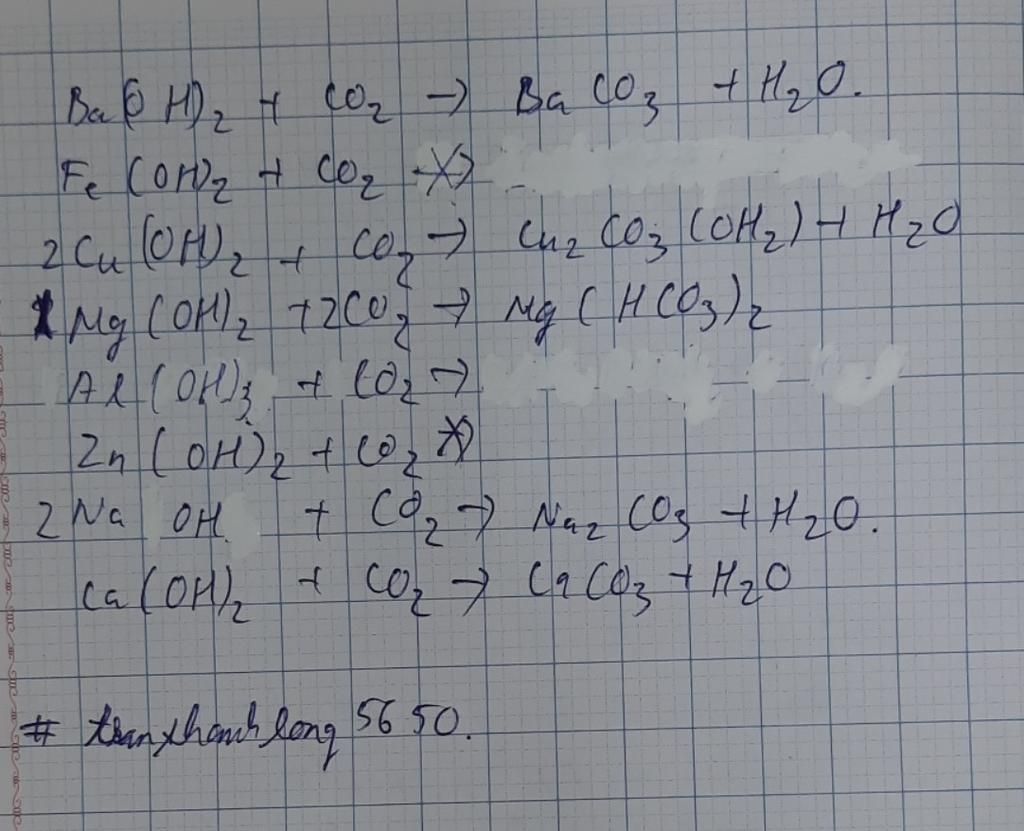 Ba(OH)₂ + CO₂ → BaCO₃ + H₂O.
Fe(OH)₂ + CO₂ -X->
2Cu(OH)₂ + CO₂ → Cu₂CO₃(OH₂) + H₂O
1Mg(OH)₂ + 2CO₂ → Mg(HCO₃)₂
Al(OH)₃ + CO₂ →
Zn(OH)₂ + CO₂ -X->
2NaOH + CO₂ → Na₂CO₃ + H₂O.
Ca(OH)₂ + CO₂ → CaCO₃ + H₂O
# tranxthanhlong5650.